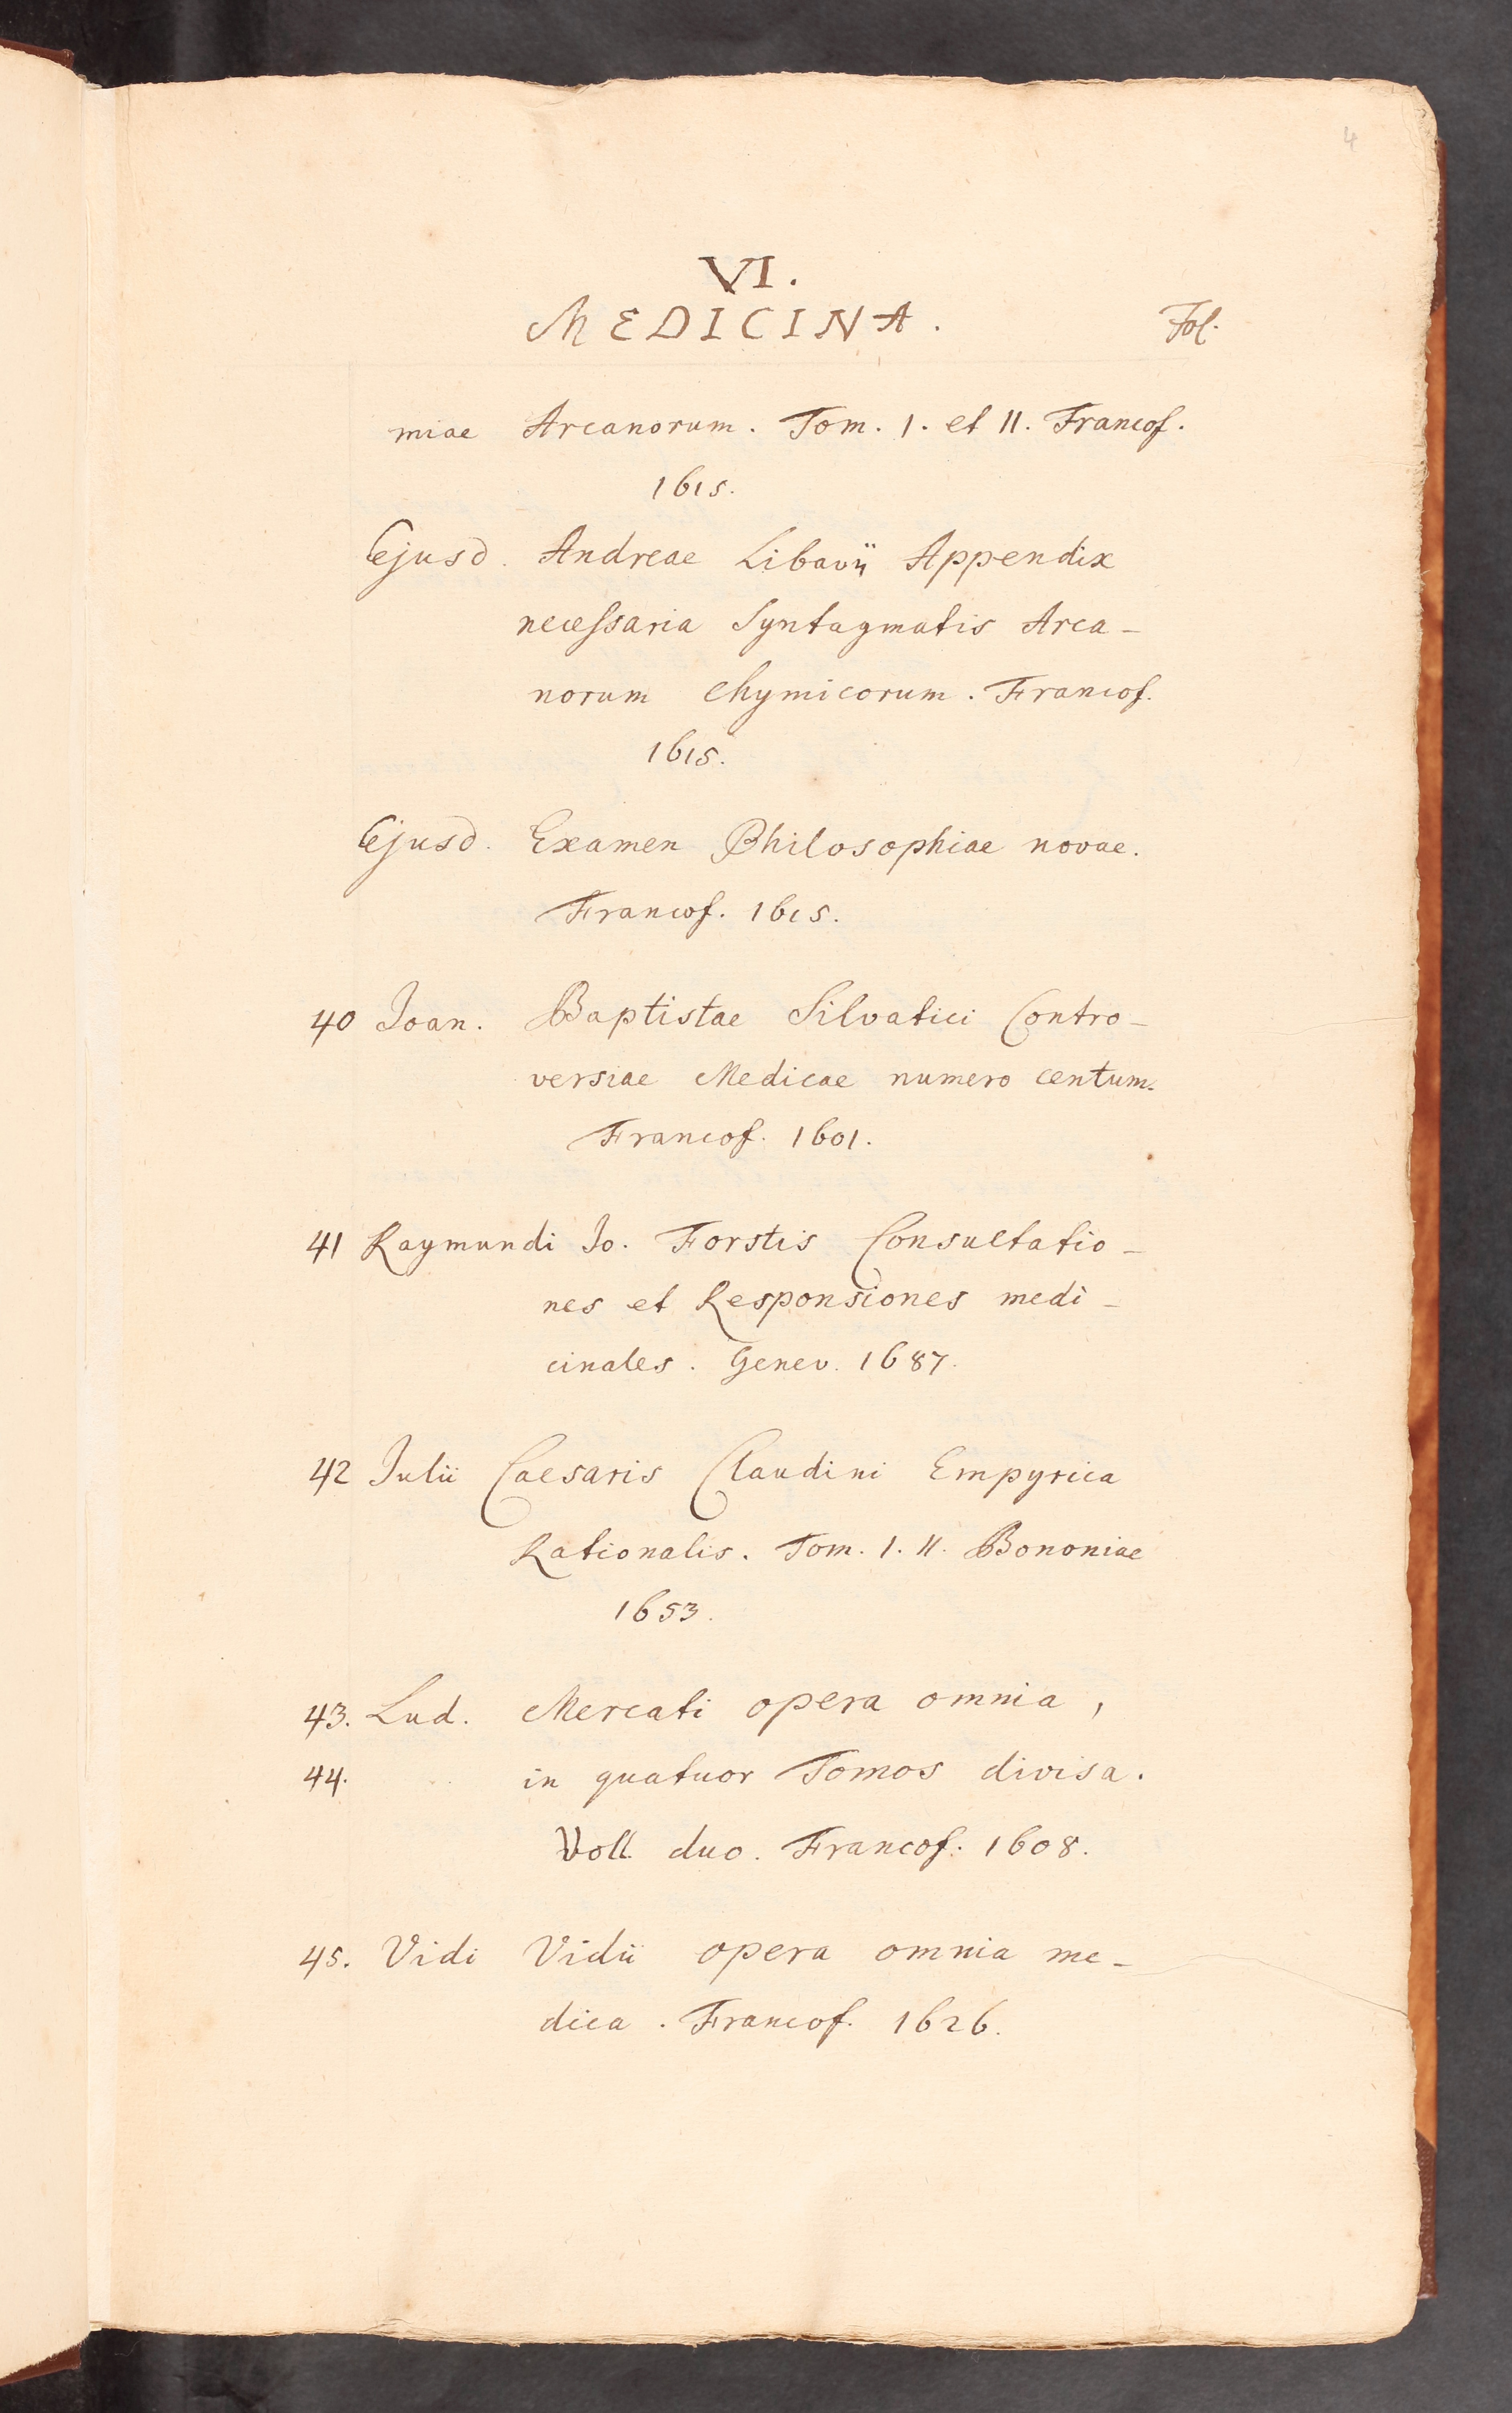 4
VI.
MEDICINA. Fol.
miae Arcanorum. Tom. I. et II. Francof.
1615.
Ejusd. Andreae Libavii Appendix
necessaria Syntagmatis Arca-
norum Chymicorum. Francof.
1615.
Ejusd. Examen Philosophiae novae.
Francof. 1615.
40 Joan. Baptistae Silvatici Contro-
versiae Medicae numero centum.
Francof. 1601.
41 Raymundi Jo. Forstis Consultatio-
nes et Responsiones medi-
cinales. Genev. 1687.
42 Julii Caesaris Claudini Empyrica
Rationalis. Tom. I. II. Bononiae
1653.
43. Lud. Mercati opera omnia,
44. in quatuor Tomos divisa.
Voll. duo. Francof. 1608.
45. Vidi Vidii opera omnia me-
dica. Francof. 1626.